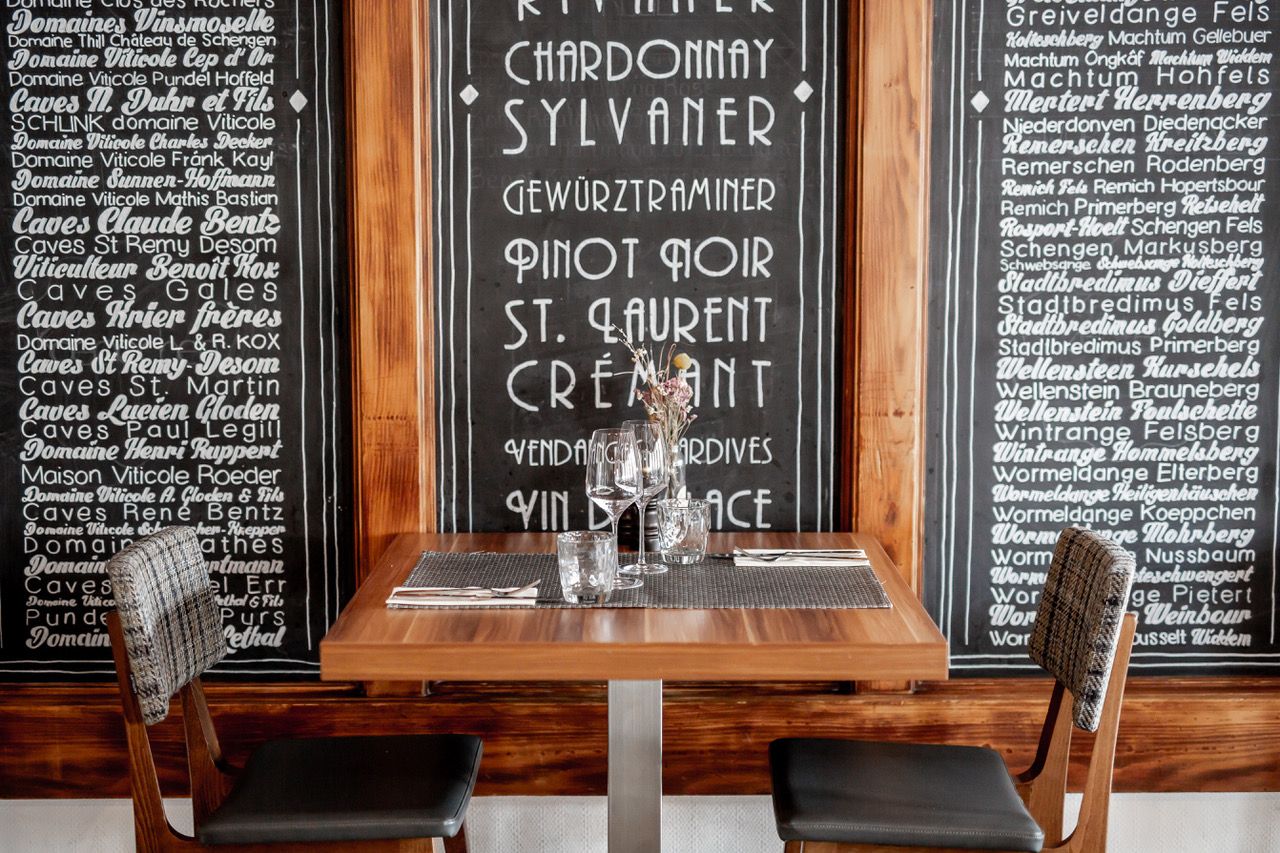 Domaine Clos des Rochers
Domaines Vinsmoselle
Domaine Thill Château de Schengen
Domaine Viticole Cep d'Or
Domaine Viticole Pundel Hoffeld
Caves N. Duhr et Fils
SCHLINK domaine Viticole
Domaine Viticole Charles Decker
Domaine Viticole Fränk Kayl
Domaine Sunnen-Hoffmann
Domaine Viticole Mathis Bastian
Caves Claude Bentz
Caves St Remy Desom
Viticulteur Benoît Kox
Caves Gales
Caves Krier frères
Domaine Viticole L. & R. KOX
Caves St Remy-Desom
Caves St. Martin
Caves Lucien Gloden
Caves Paul Legill
Domaine Henri Ruppert
Maison Viticole Roeder
Domaine Viticole A. Gloden & Fils
Caves René Bentz
Domaine Viticole
Domaine
Domaine
Caves
Domaine Viti
& Fils
Domaine
CHARDONNAY
SYLVANER
GEWÜRZTRAMINER
PINOT NOIR
ST. LAURENT
CRÉMANT
VIN
Greiveldange Fels
Kolteschberg Machtum Gellebuer
Machtum Ongkäf Machtum Widdem
Machtum Hohfels
Mertert Herrenberg
Niederdonven Diedenacker
Remerschen Kreitzberg
Remerschen Rodenberg
Remich Fels Remich Hopertsbour
Remich Primerberg Retschelt
Rosport-Hoelt Schengen Fels
Schengen Markusberg
Schwebsange Schwebsange Kolteschberg
Stadtbredimus Dieffert
Stadtbredimus Fels
Stadtbredimus Goldberg
Stadtbredimus Primerberg
Wellensteen Kurschels
Wellenstein Brauneberg
Wellenstein Foulschette
Wintrange Felsberg
Wintrange Hommelsberg
Wormeldange Elterberg
Wormeldange Heiligenhäuschen
Wormeldange Koeppchen
Wormeldange Mohrberg
Nussbaum
Pietert
Weinbour
Widdem